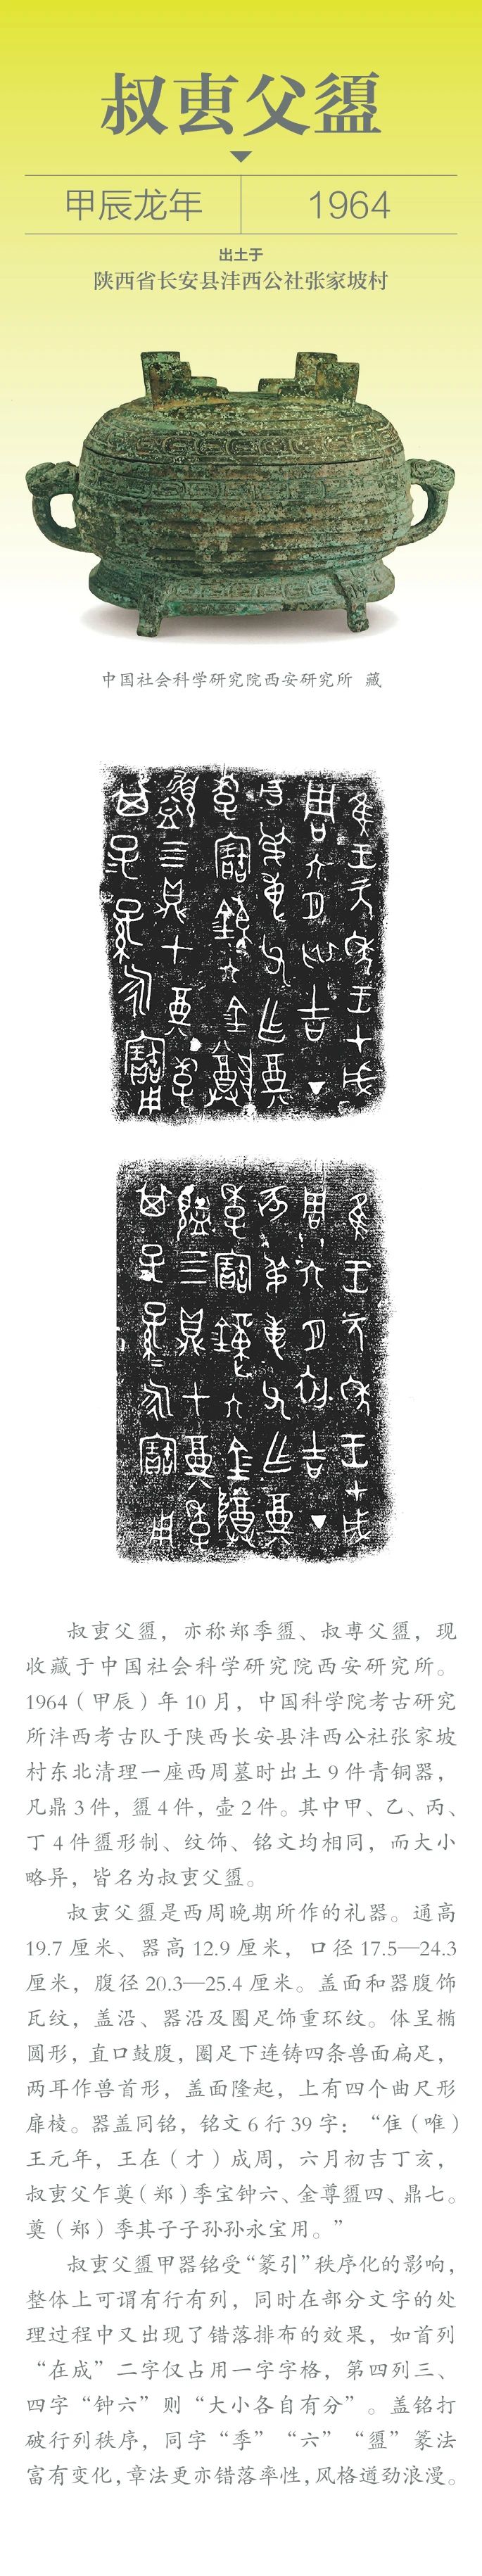 叔叀父盨
甲辰龙年
1964
出土于
陕西省长安县沣西公社张家坡村
中国社会科学研究院西安研究所 藏
叔叀父盨，亦称郑季盨、叔尃父盨，现
收藏于中国社会科学研究院西安研究所。
1964（甲辰）年 10 月，中国科学院考古研究
所沣西考古队于陕西长安县沣西公社张家坡
村东北清理一座西周墓时出土 9 件青铜器，
凡鼎 3 件，盨 4 件，壶 2 件。其中甲、乙、丙、
丁 4 件盨形制、纹饰、铭文均相同，而大小
略异，皆名为叔叀父盨。
叔叀父盨是西周晚期所作的礼器。通高
19.7 厘米、器高 12.9 厘米，口径 17.5—24.3
厘米，腹径 20.3—25.4 厘米。盖面和器腹饰
瓦纹，盖沿、器沿及圈足饰重环纹。体呈椭
圆形，直口鼓腹，圈足下连铸四条兽面扁足，
两耳作兽首形，盖面隆起，上有四个曲尺形
扉棱。器盖同铭，铭文 6 行 39 字：“隹（唯）
王元年，王在（才）成周，六月初吉丁亥，
叔叀父乍奠（郑）季宝钟六、金尊盨四、鼎七。
奠（郑）季其子子孙孙永宝用。”
叔叀父盨甲器铭受“篆引”秩序化的影响，
整体上可谓有行有列，同时在部分文字的处
理过程中又出现了错落排布的效果，如首列
“在成”二字仅占用一字字格，第四列三、
四字“钟六”则“大小各自有分”。盖铭打
破行列秩序，同字“季”“六”“盨”篆法
富有变化，章法更亦错落率性，风格遒劲浪漫。